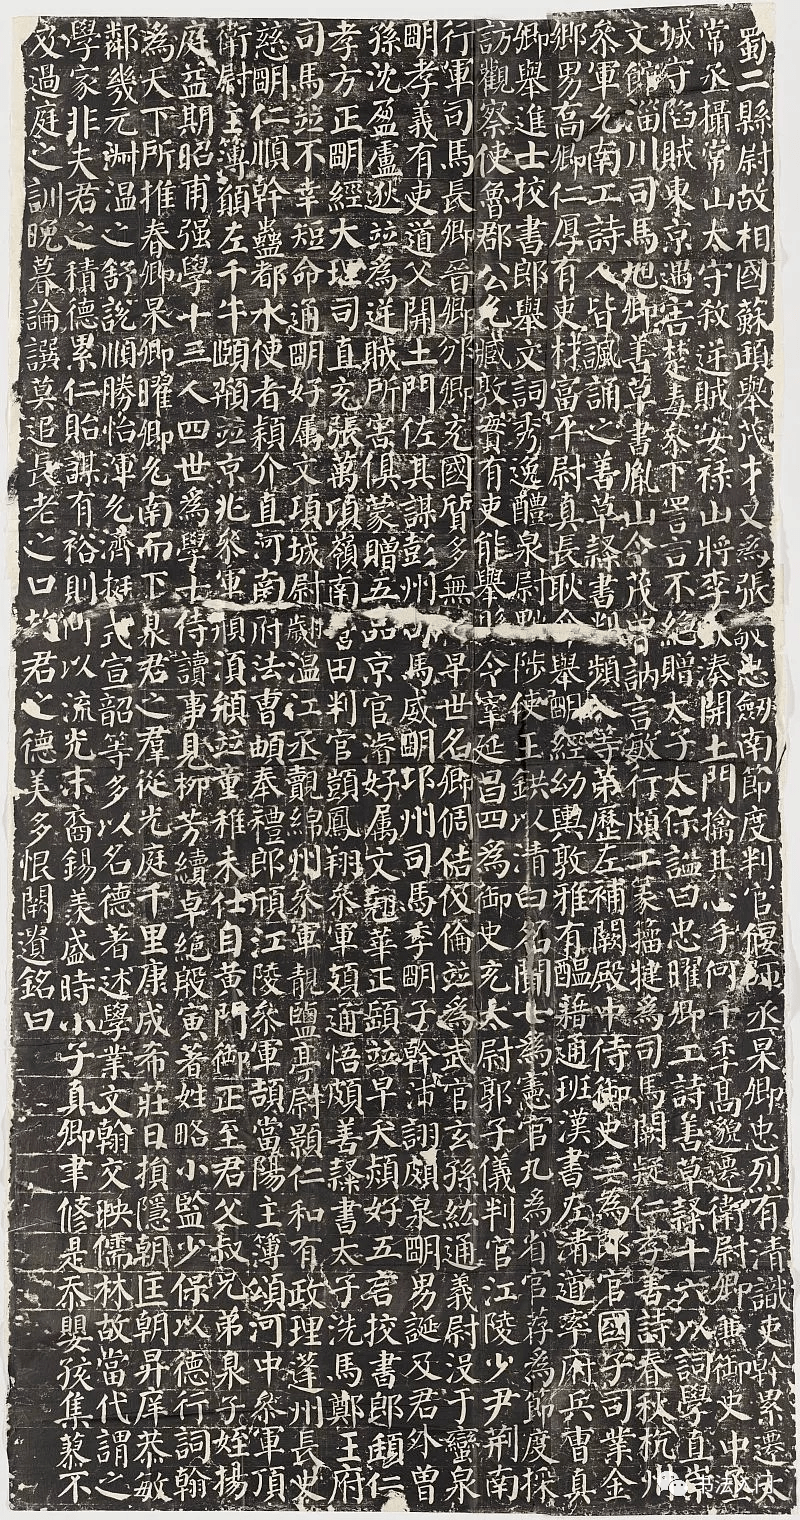 蜀二縣尉故相國蘇頲舉茂才又為張敬忠劒南節度判官偃師丞杲卿忠烈有清識吏幹累遷太
常丞攝常山太守殺逆賊安祿山將李欽湊開土門擒其心手何千秊高邈遷衛尉卿兼御史中丞
城守陷賊東京遇害楚毒參下詈言不絕贈太子太保諡曰忠曜卿工詩善草隸十六以詞學直崇
文館淄川司馬旭卿善草書胤山令茂曾訥言敏行頗工篆籀犍為司馬闕疑仁孝善詩春秋杭州
參軍允南工詩人皆諷誦之善草隸書判頻入等第歷左補闕殿中侍御史三為郎官國子司業金
鄉男喬卿仁厚有吏材富平尉真長耿介舉明經幼輿敦雅有醞藉通班漢書左清道率府兵曹真
卿舉進士校書郎舉文詞秀逸醴泉尉黜陟使王鉷以清白名聞七為憲官九為省官荐為節度採
訪觀察使魯郡公允臧敦實有吏能舉縣令宰延昌四為御史充太尉郭子儀判官江陵少尹荊南
行軍司馬長卿晉卿邠卿充國質多無祿早世名卿倜佶伋倫並為武官玄孫紘通義尉沒于蠻泉
明孝義有吏道父開土門佐其謀彭州司馬威明邛州司馬季明子幹沛詡頗泉明男誕及君外曾
孫沈盈盧逖並為逆賊所害俱蒙贈五品京官濬好屬文翹華正頤並早夭熲好五言校書郎頲仁
孝方正明經大理司直充張萬頃嶺南營田判官顗鳳翔參軍頍通悟頗善隸書太子洗馬鄭王府
司馬並不幸短命通明好屬文項城尉翽溫江丞覿綿州參軍靚鹽亭尉顥仁和有政理蓬州長史
慈明仁順幹蠱都水使者穎介直河南府法曹頔奉禮郎頎江陵參軍頡當陽主簿頌河中參軍頂
衛尉主簿願左千牛頤頫並京兆參軍須並童稚未仕自黃門御正至君父叔兄弟泉子姪揚
庭益期昭甫強學十三人四世為學士侍讀事見柳芳續卓絕殷寅著姓略小監少保以德行詞翰
為天下所推春卿杲卿曜卿允南而下泉君之群從光庭千里康成希莊日損隱朝匡朝昇庠恭敏
鄰幾元淵溫之舒說順勝怡渾允濟挺式宣韶等多以名德著述學業文翰交映儒林故當代謂之
學家非夫君之積德累仁貽謀有裕則何以流光末裔錫羨盛時小子真卿聿脩是忝嬰孩集蓼不
及過庭之訓晚暮論譔莫追長老之口故君之德美多恨闕遺銘曰